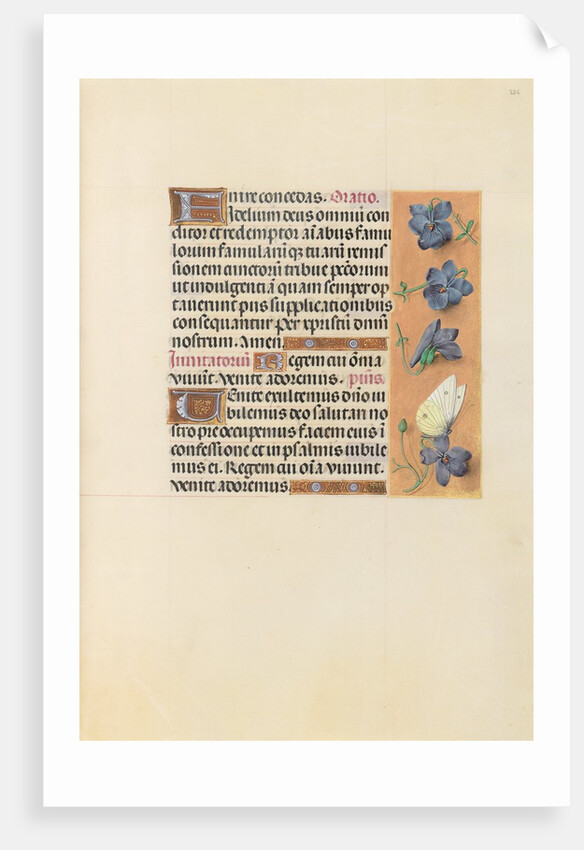 226
nire concedas. Oratio.
Fidelium deus omniū con
ditor et redemptor aīabus famu
lorum famularūq̃ tuarū remis
sionem cunctorū tribue pc̄corum
ut indulgentiā quam semper op
taverunt piis supplicationibus
consequantur per xpristū dnm̄
nostrum. Amen.
Invitatoriū Regem cui oīnia
vivūt. Venite adoremus. ps̄us.
Venite exultemus dño iu
bilemus deo salutari no
stro preocupemus faciem eius ī
confessione et in psalmis iubile
mus ei. Regem cui oīa vivunt.
venite adoremus.